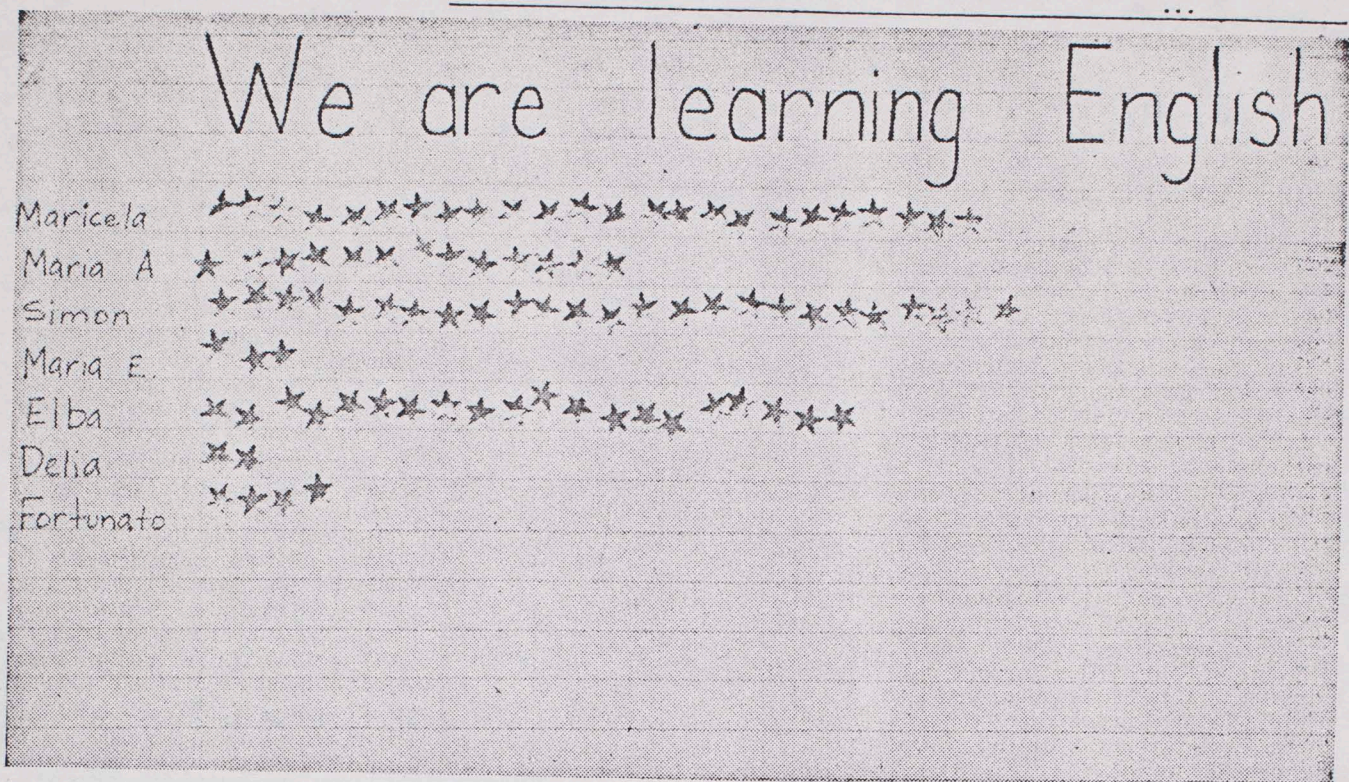 We are learning English
Maricela
Maria A
Simon
Maria E.
Elba
Delia
Fortunato